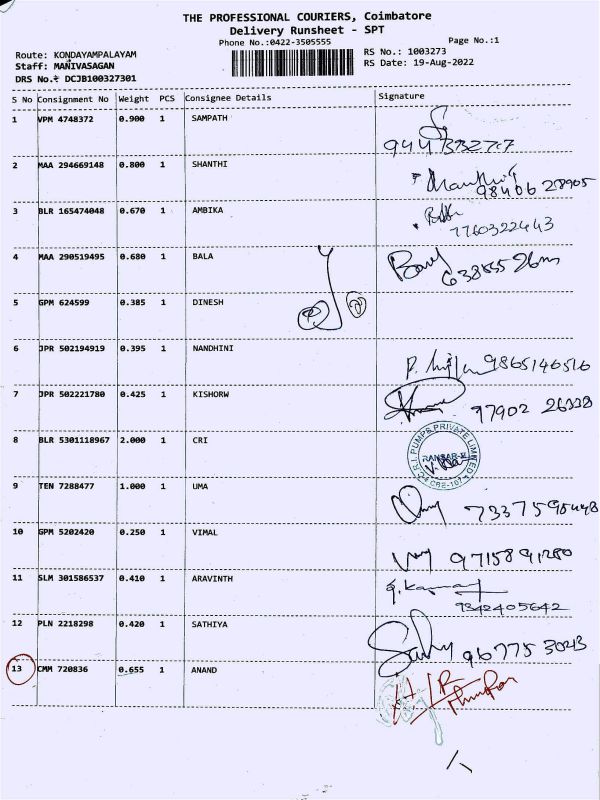 THE PROFESSIONAL COURIERS, Coimbatore
Delivery Runsheet - SPT
Phone No.:0422-3505555 Page No.:1
Route: KONDAYAMPALAYAM RS No.: 1003273
Staff: MANIVASAGAN RS Date: 19-Aug-2022
DRS No.: DCJB100327301
S No Consignment No Weight PCS Consignee Details Signature
1 VPM 4748372 0.900 1 SAMPATH
2 MAA 294669148 0.800 1 SHANTHI
98406 28905
3 BLR 165474048 0.670 1 AMBIKA
7760322443
4 MAA 290519495 0.680 1 BALA
5 GPM 624599 0.385 1 DINESH
6 JPR 502194919 0.395 1 NANDHINI
9865146516
7 JPR 502221780 0.425 1 KISHORW
97902 26338
8 BLR 5301118967 2.000 1 CRI
C.R.I. PUMPS PRIVATE LIMITED
9 TEN 7288477 1.000 1 UMA
10 GPM 5202420 0.250 1 VIMAL
9715891280
11 SLM 301586537 0.410 1 ARAVINTH
9342405642
12 PLN 2218298 0.420 1 SATHIYA
13 CMM 720836 0.655 1 ANAND